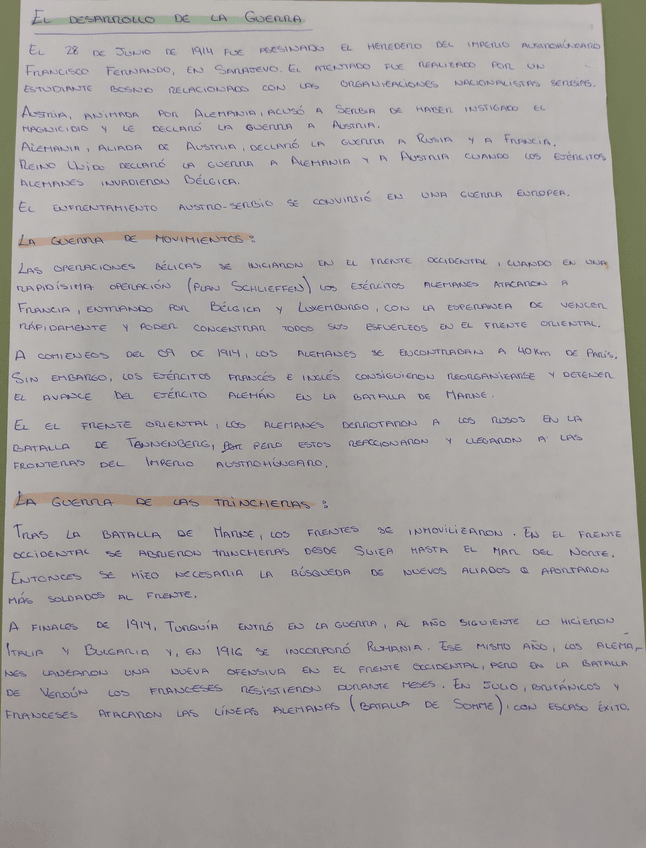 EL DESARROLLO DE LA GUERRA
EL 28 DE JUNIO DE 1914 FUE ASESINADO EL HEREDERO DEL IMPERIO AUSTROHÚNGARO
FRANCISCO FERNANDO, EN SARAJEVO. EL ATENTADO FUE REALIZADO POR UN
ESTUDIANTE BOSNIO RELACIONADO CON LAS ORGANIZACIONES NACIONALISTAS SERBIAS.
AUSTRIA, ANIMADA POR ALEMANIA, ACUSÓ A SERBIA DE HABER INSTIGADO EL
MAGNICIDIO Y LE DECLARÓ LA GUERRA A AUSTRIA.
ALEMANIA, ALIADA DE AUSTRIA, DECLARÓ LA GUERRA A RUSIA Y A FRANCIA.
REINO UNIDO DECLARÓ LA GUERRA A ALEMANIA Y A AUSTRIA CUANDO LOS EJÉRCITOS
ALEMANES INVADIERON BÉLGICA.
EL ENFRENTAMIENTO AUSTRO-SERBIO SE CONVIRTIÓ EN UNA GUERRA EUROPEA.
LA GUERRA DE MOVIMIENTOS:
LAS OPERACIONES BÉLICAS SE INICIARON EN EL FRENTE OCCIDENTAL, CUANDO EN UNA
RAPIDÍSIMA OPERACIÓN (PLAN SCHLIEFFEN) LOS EJÉRCITOS ALEMANES ATACARON A
FRANCIA, ENTRANDO POR BÉLGICA Y LUXEMBURGO, CON LA ESPERANZA DE VENCER
RÁPIDAMENTE Y PODER CONCENTRAR TODOS SUS ESFUERZOS EN EL FRENTE ORIENTAL.
A COMIENZOS DEL 09 DE 1914, LOS ALEMANES SE ENCONTRABAN A 40Km DE PARÍS.
SIN EMBARGO, LOS EJÉRCITOS FRANCÉS E INGLÉS CONSIGUIERON REORGANIZARSE Y DETENER
EL AVANCE DEL EJÉRCITO ALEMÁN EN LA BATALLA DE MARNE.
EL EL FRENTE ORIENTAL, LOS ALEMANES DERROTARON A LOS RUSOS EN LA
BATALLA DE TENNENBERG, PERO ESTOS REACCIONARON Y LLEGARON A LAS
FRONTERAS DEL IMPERIO AUSTROHÚNGARO.
LA GUERRA DE LAS TRINCHERAS:
TRAS LA BATALLA DE MARNE, LOS FRENTES SE INMOVILIZARON. EN EL FRENTE
OCCIDENTAL SE ABRIERON TRINCHERAS DESDE SUIZA HASTA EL MAR DEL NORTE.
ENTONCES SE HIZO NECESARIA LA BÚSQUEDA DE NUEVOS ALIADOS Q APORTARON
MÁS SOLDADOS AL FRENTE.
A FINALES DE 1914, TURQUÍA ENTRÓ EN LA GUERRA, AL AÑO SIGUIENTE LO HICIERON
ITALIA Y BULGARIA Y, EN 1916 SE INCORPORÓ RUMANIA. ESE MISMO AÑO, LOS ALEMA-
NES LANZARON UNA NUEVA OFENSIVA EN EL FRENTE OCCIDENTAL, PERO EN LA BATALLA
DE VERDÚN LOS FRANCESES RESISTIERON DURANTE MESES. EN JULIO, BRITÁNICOS Y
FRANCESES ATACARON LAS LÍNEAS ALEMANAS (BATALLA DE SOMME), CON ESCASO ÉXITO.